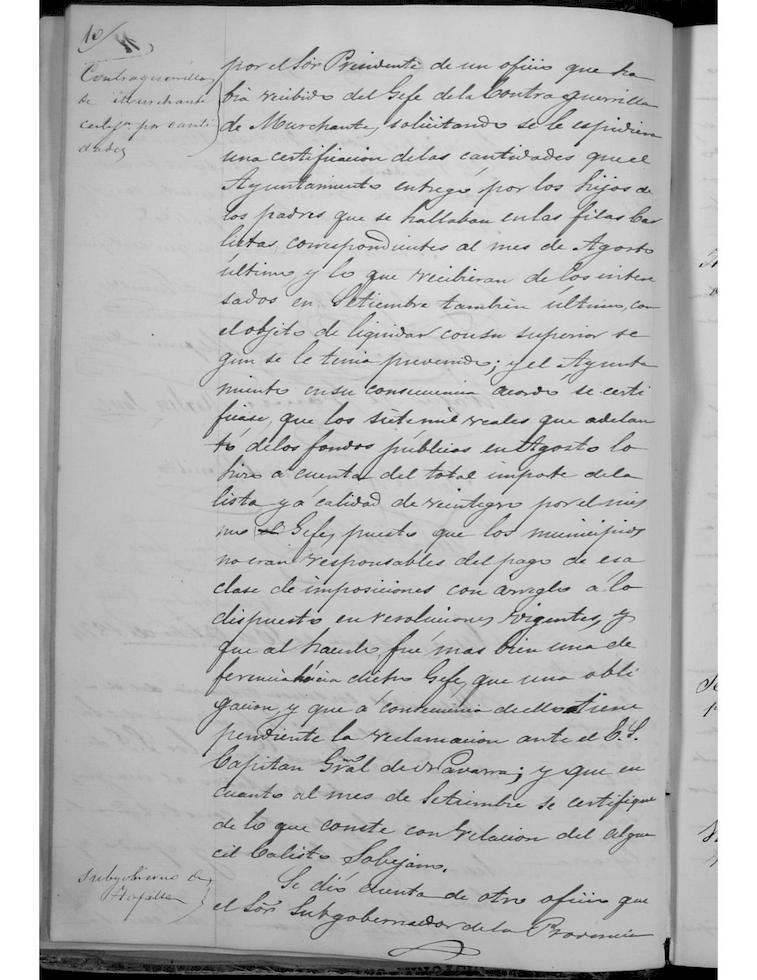 10
Contraguerrilla
de Murchante
certifn por canti
dades
por el Sor Presidente de un oficio que ha
bia recibido del Gefe de la Contraguerrilla
de Murchante, solicitando se le espidiera
una certificacion de las cantidades que el
Ayuntamiento entregó por los hijos de
los padres que se hallaban en las filas Car
listas, correspondientes al mes de Agosto
último y lo que recibieran de los intere
sados en Setiembre tambien último, con
el objeto de liquidar con su superior se
gun se le tenia prevenido; y el Ayunta
miento en su consecuencia acordó se certi
ficase, que los siete mil reales que adelan
tó de los fondos públicos en Agosto lo
hizo a cuenta del total importe de la
lista y á calidad de reintegro por el mis
mo Gefe, puesto que los municipios
no eran responsables del pago de esa
clase de imposiciones con arreglo á lo
dispuesto en resoluciones vigentes, y
que al hacerlo fué mas bien una de
ferencia hácia dicho Gefe, que una obli
gacion, y que á consecuencia de ello tiene
pendiente la reclamacion ante el E. S.
Capitan Gral de Navarra; y que en
cuanto al mes de Setiembre se certifique
de lo que conste con relacion del algua
cil Calisto Sobejano.
Subgobierno de
Tafalla
Se dió cuenta de otro oficio que
el Sor Subgobernador de la Provincia